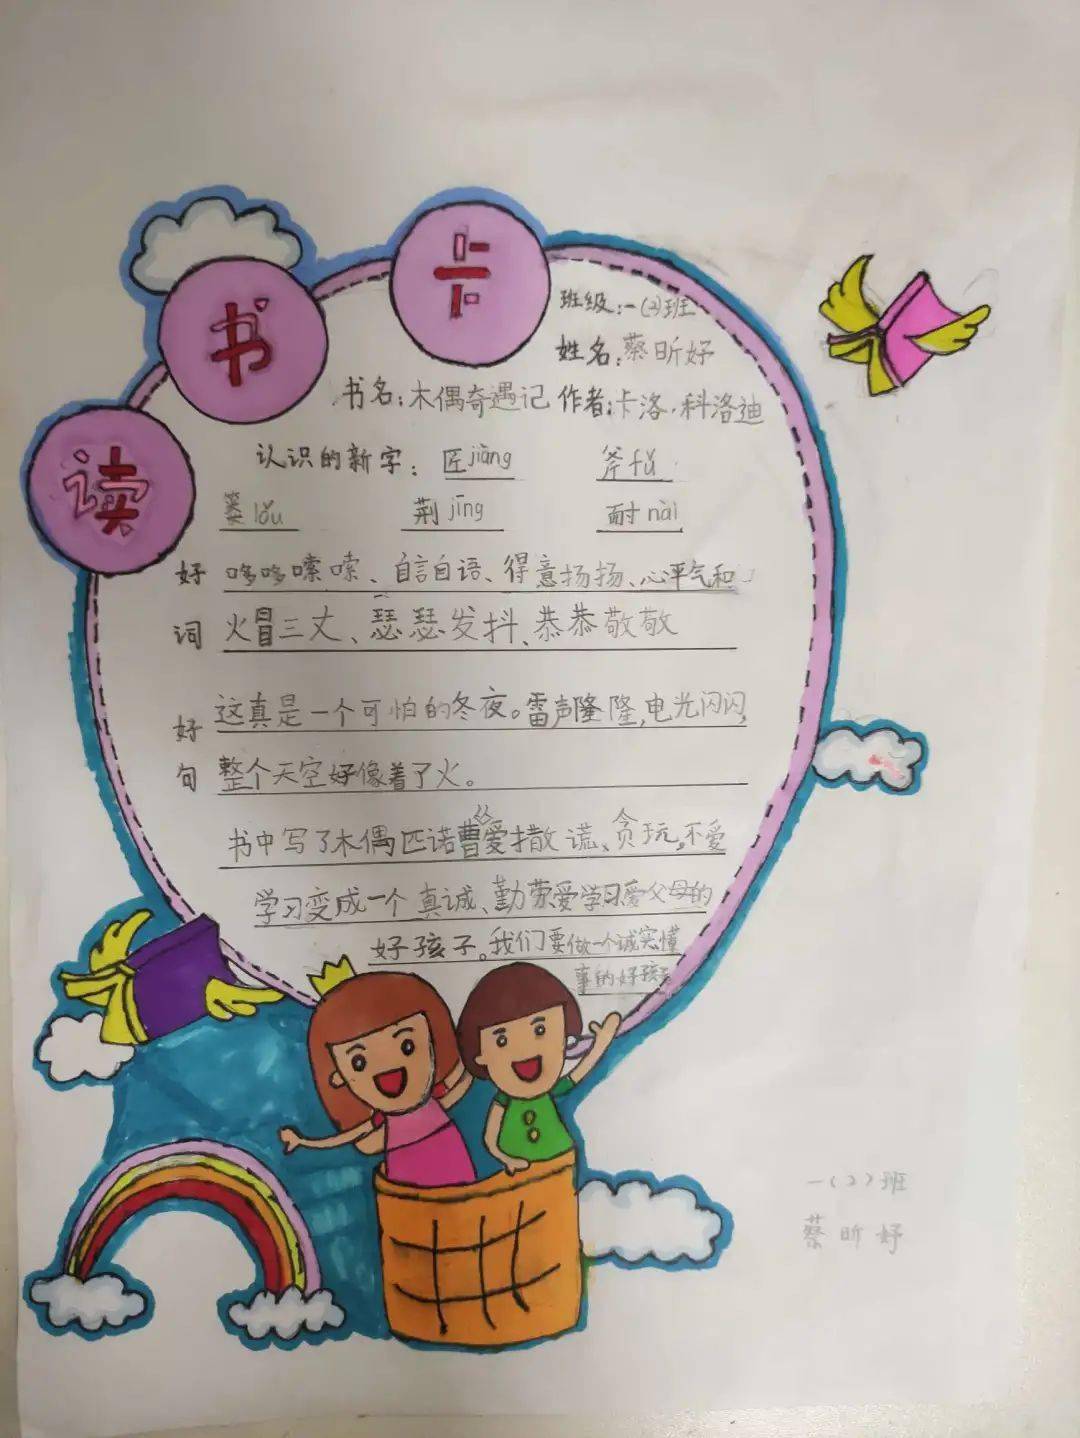 读书卡
班级:一(2)班
姓名:蔡昕妤
书名:木偶奇遇记 作者:卡洛·科洛迪
认识的新字: 匠jiàng 斧fǔ
篓lǒu 荆jīng 耐nài
好 哆哆嗦嗦、自言自语、得意扬扬、心平气和
词 火冒三丈、瑟瑟发抖、恭恭敬敬
好 这真是一个可怕的冬夜。雷声隆隆,电光闪闪,
句 整个天空好像着了火。
书中写了木偶匹诺曹从爱撒谎、贪玩,不爱
学习变成一个真诚、勤劳爱学习爱父母的
好孩子。我们要做一个诚实懂
事的好孩子
一(2)班
蔡昕妤